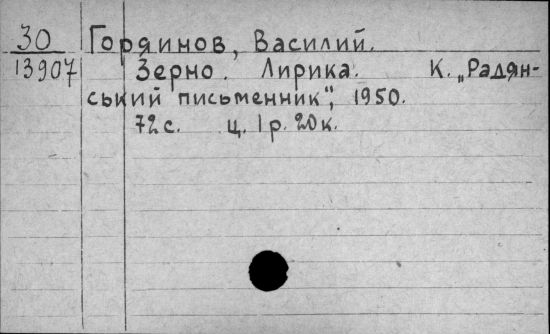 30 Гордиинов, Василий.
13907 Зерно. Лирика. К. „Радян-
ський письменник", 1950.
72 с. ц. 1 р. 20 к.